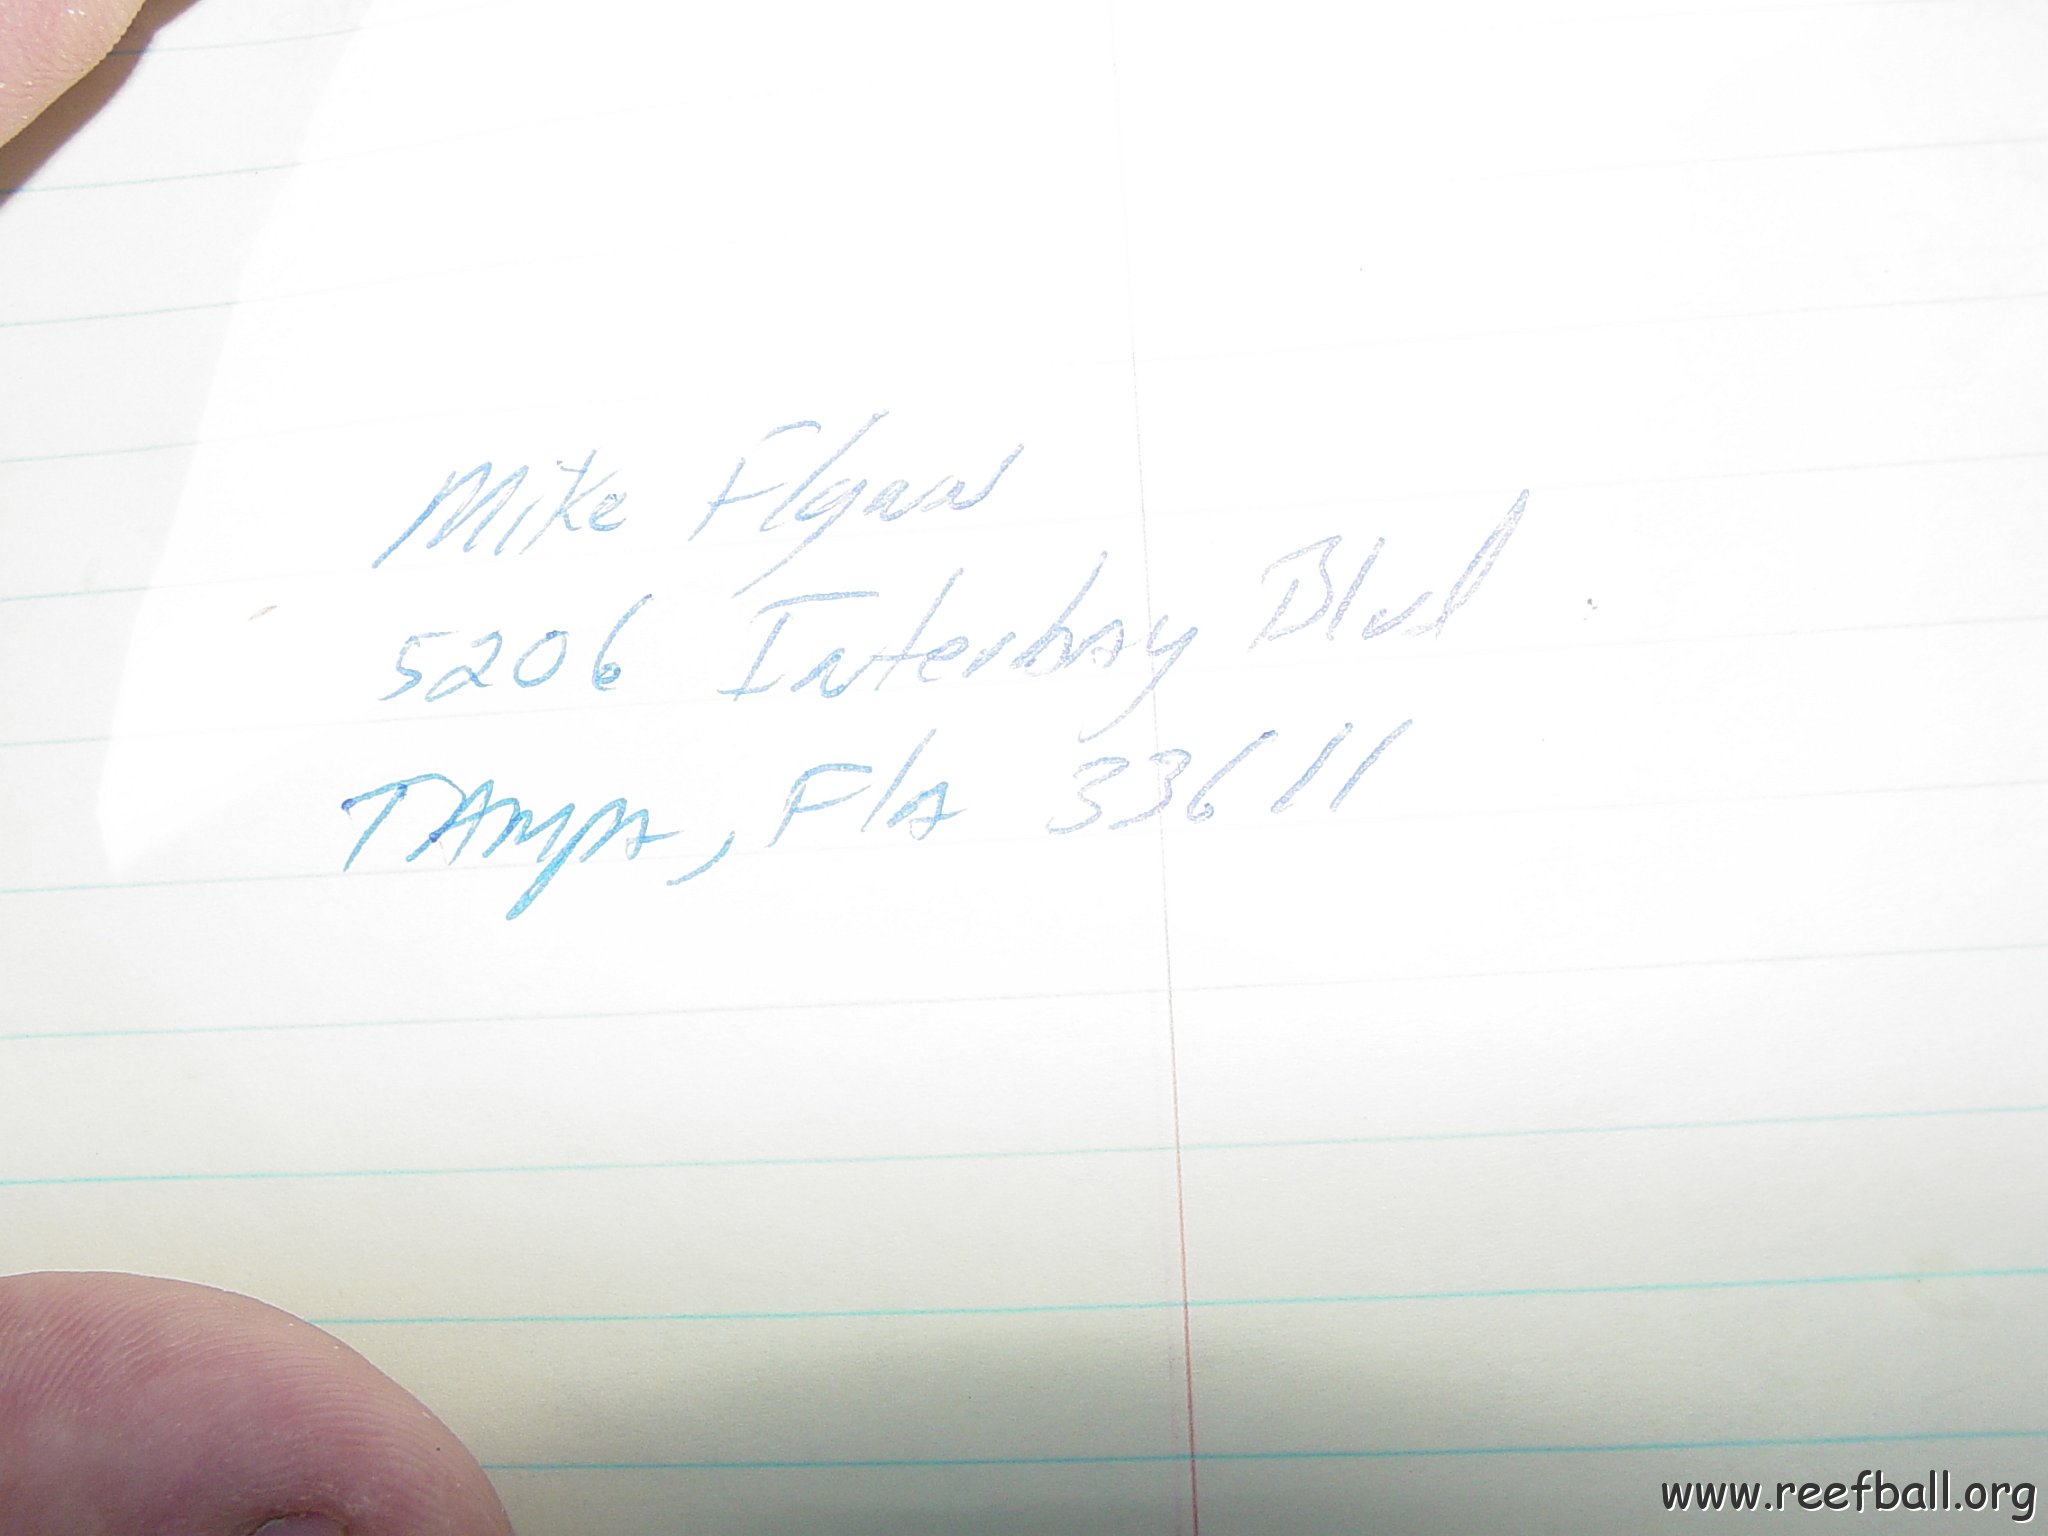 Mike Flynn
5206 Interbay Blvd
TAmpA, FlA 33611
www.reefball.org